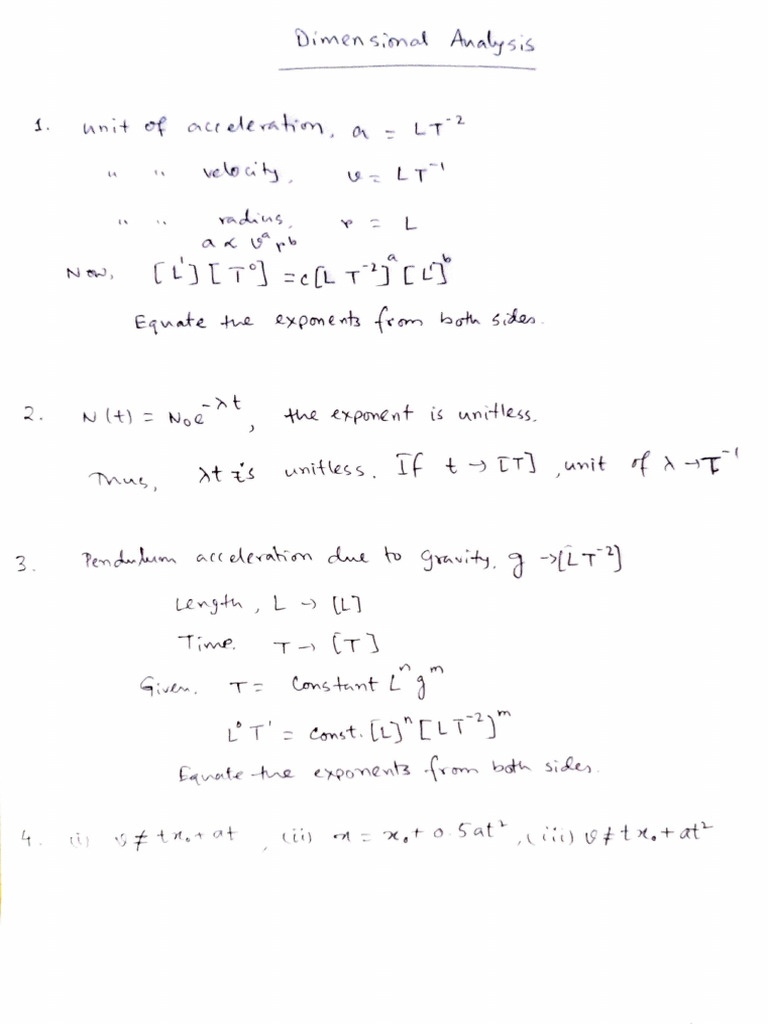 Dimensional Analysis
1. unit of acceleration, a = LT⁻²
" " velocity, v = LT⁻¹
" " radius, r = L
a ∝ vᵃ rᵇ
Now, [L¹][T⁰] = c[L T⁻²]ᵃ [L¹]ᵇ
Equate the exponents from both sides.
2. N(t) = N₀e^(-λt), the exponent is unitless.
Thus, λt is unitless. If t → [T], unit of λ → T⁻¹
3. Pendulum acceleration due to gravity, g → [LT⁻²]
Length, L → [L]
Time. T → [T]
Given. T = constant Lⁿgᵐ
L⁰T¹ = const. [L]ⁿ[LT⁻²]ᵐ
Equate the exponents from both sides.
4. (i) v ≠ tx₀ + at, (ii) x = x₀ + 0.5at², (iii) v ≠ tx₀ + at²